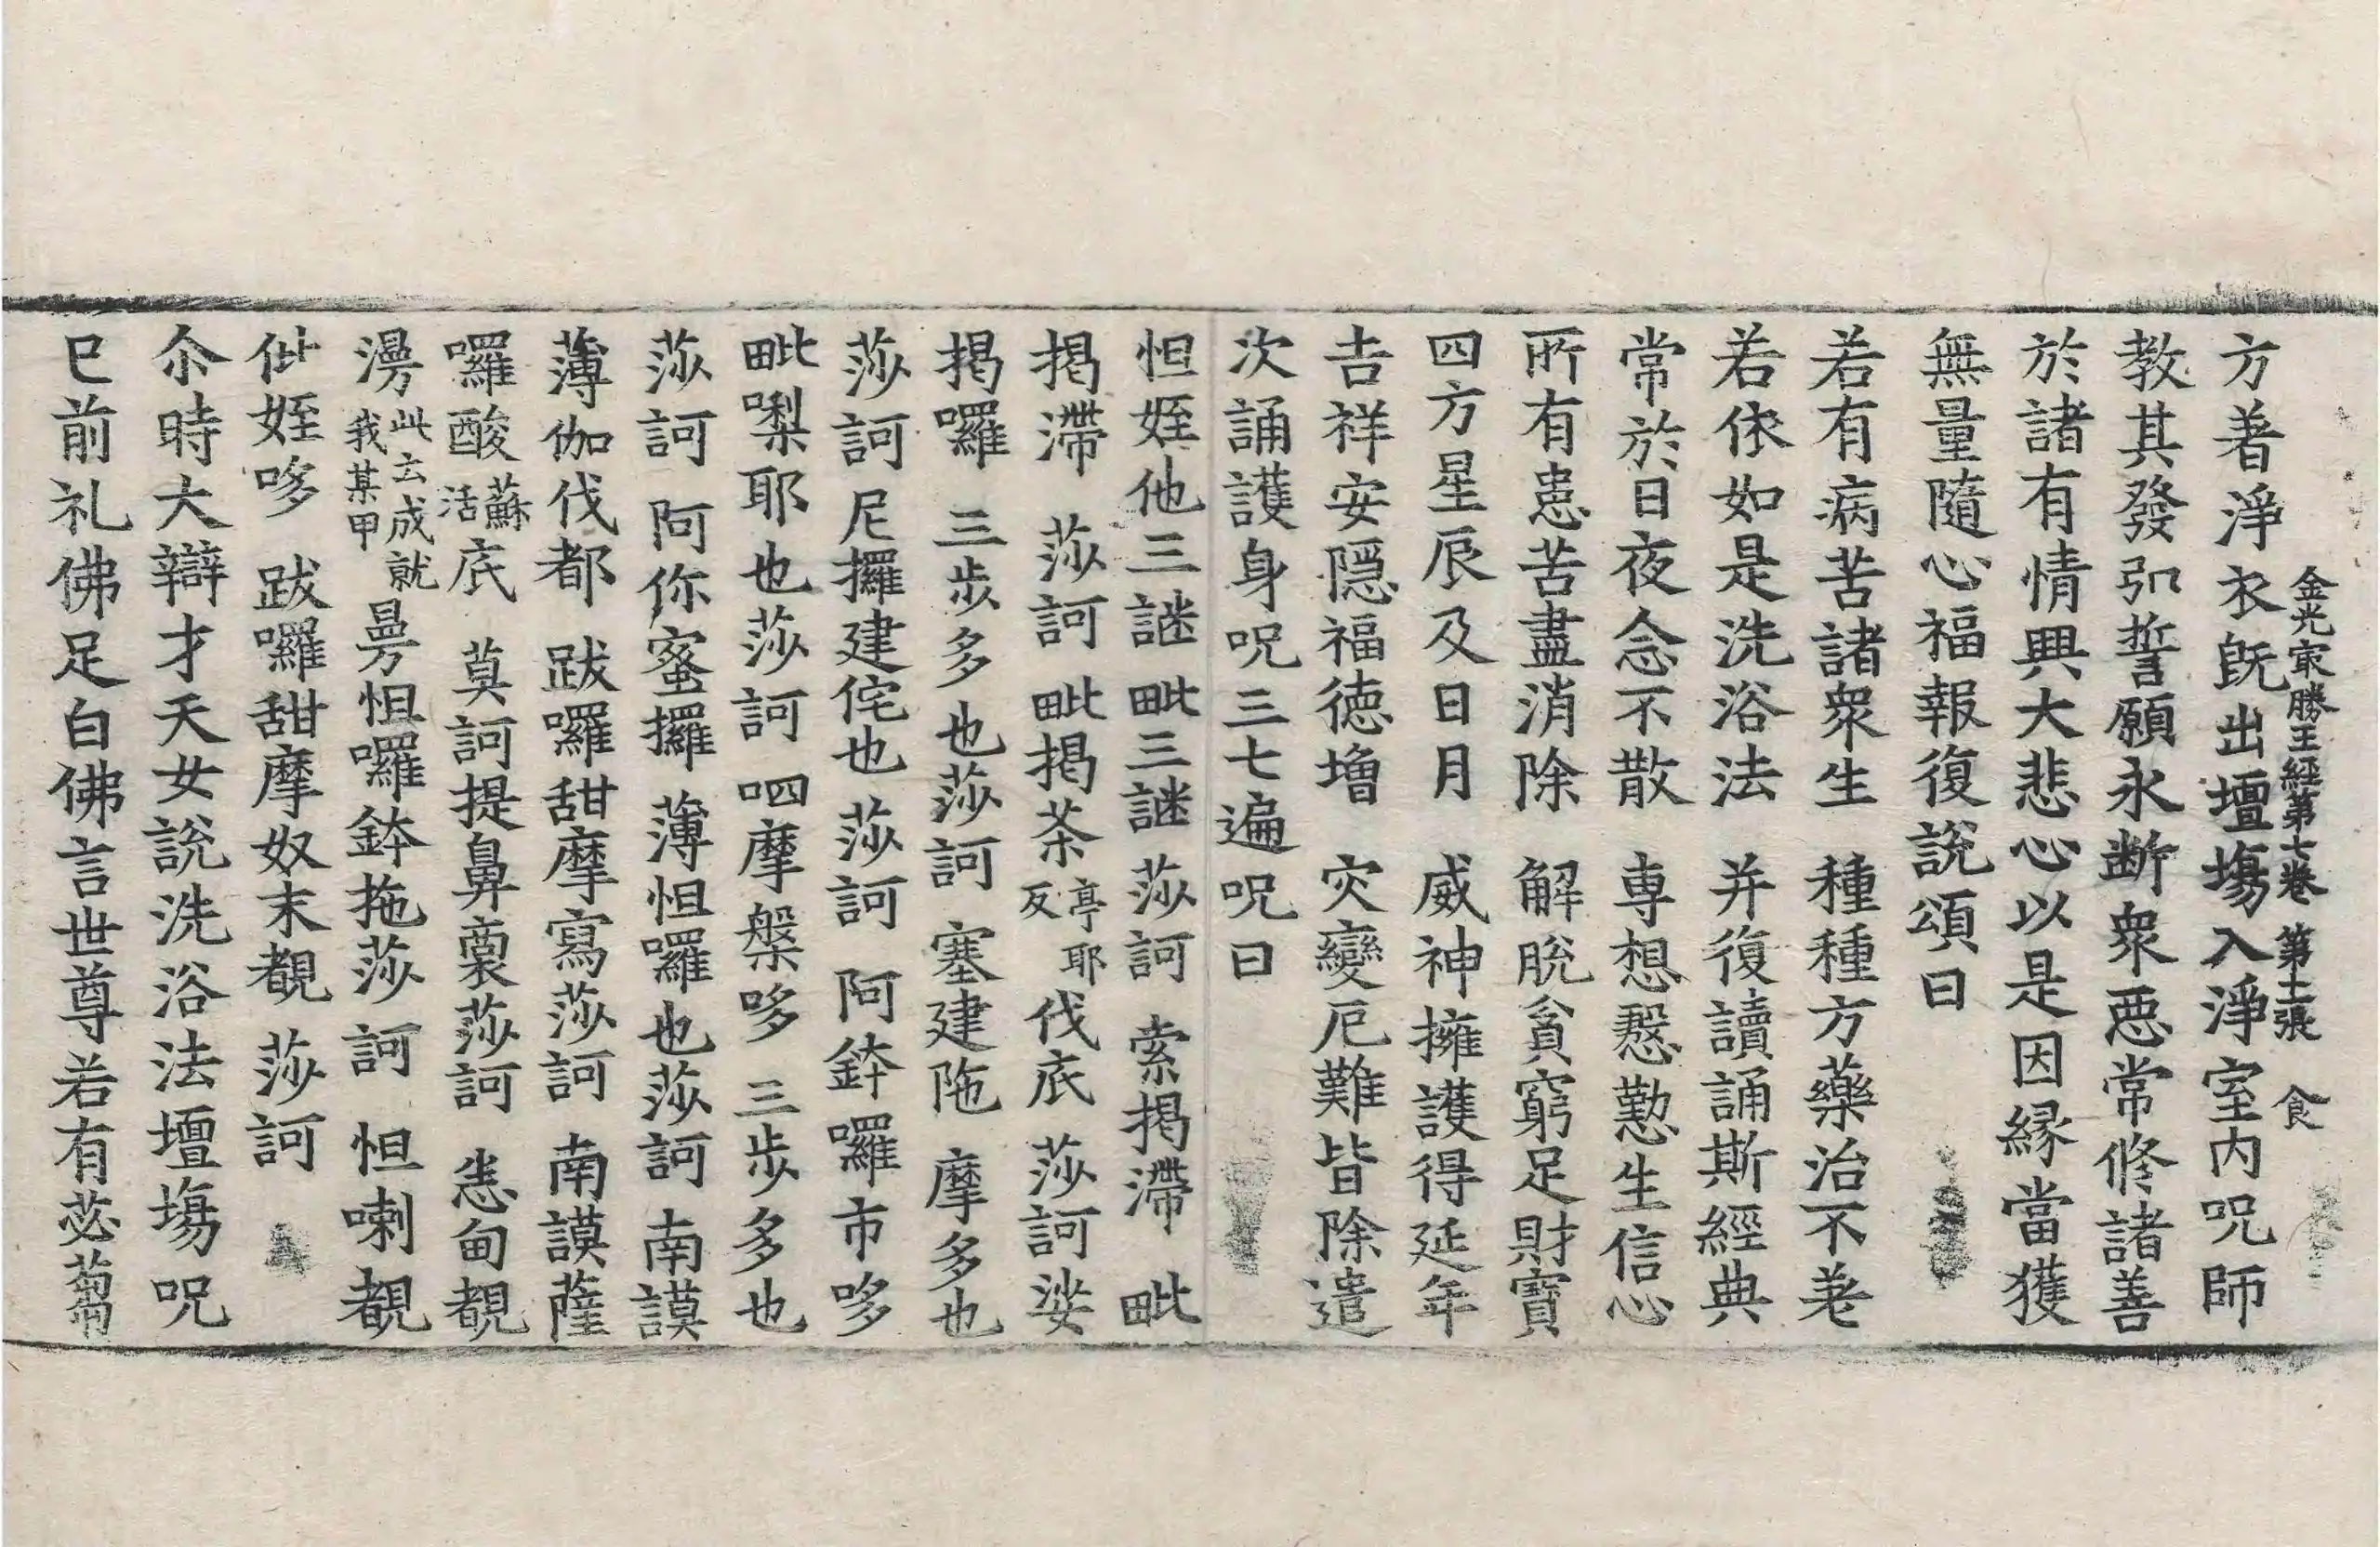 金光㝡勝王經第七卷　第十二張　食
方著淨衣旣出壇場入淨室內呪師
教其發弘誓願永断衆惡常修諸善
於諸有情興大悲心以是因縁當獲
無量隨心福報復說頌曰
若有病苦諸衆生　種種方藥治不差
若依如是洗浴法　并復讀誦斯經典
常於日夜念不散　専想慇懃生信心
所有患苦盡消除　解脫貧窮足財寶
四方星辰及日月　威神擁護得延年
吉祥安隱福德增　灾變厄難皆除遣
次誦護身呪三七遍呪曰
怛姪他三謎　毗三謎　莎訶　索揭滯　毗
揭滯　莎訶　毗揭茶亭耶反伐底　莎訶　娑
揭囉　三步多也莎訶　塞建陁　摩多也
莎訶　尼攞建侘也　莎訶　阿鉢囉市哆
毗㗚耶也莎訶　呬摩槃哆　三步多也
莎訶　阿你蜜攞　薄怛囉也莎訶　南謨
薄伽伐都　跋囉甜摩寫莎訶　南謨薩
囉酸蘇活底　莫訶提鼻裛莎訶　悉甸覩
漫此云成就我某甲曼怛囉鉢拖莎訶　怛喇覩
仳姪哆　跋囉甜摩奴末覩　莎訶
尒時大辯才天女說洗浴法壇場呪
已前礼佛足白佛言世尊若有苾蒭